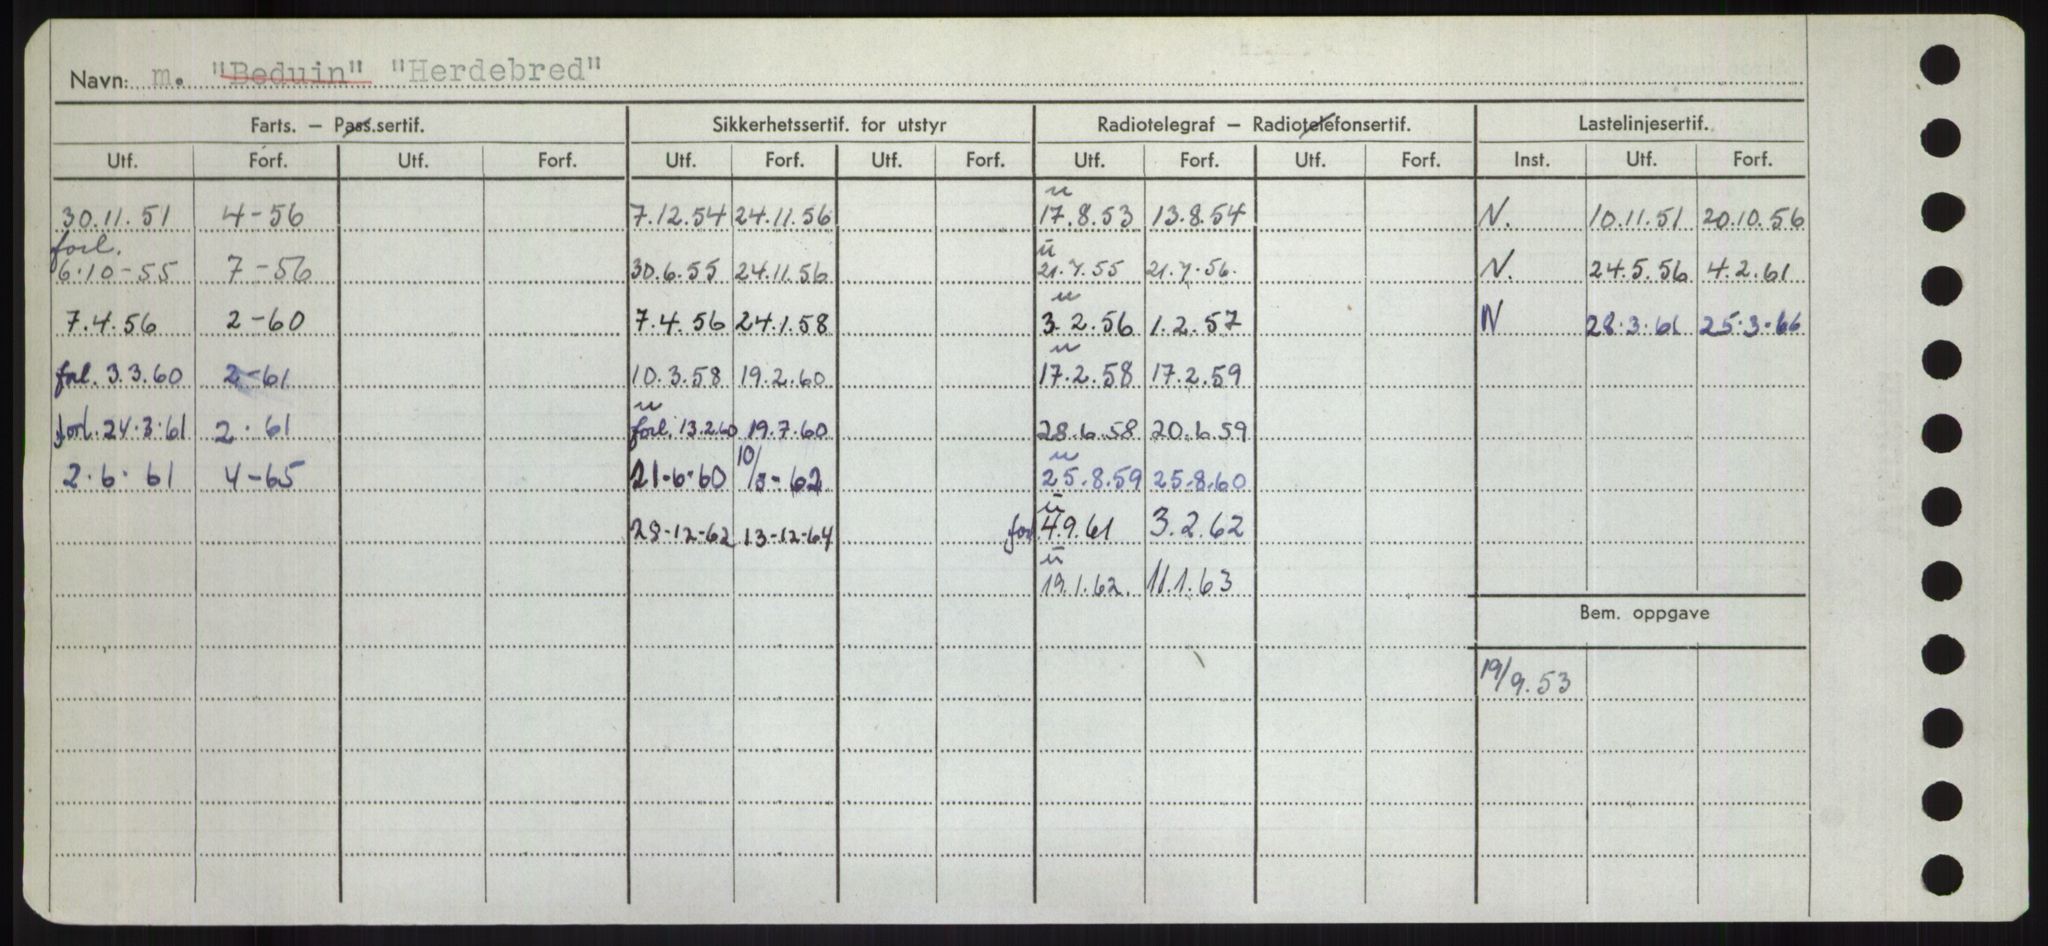 Navn: m. "Beduin" "Herdebred"
Farts. – Pass.sertif. Sikkerhetssertif. for utstyr Radiotelegraf – Radiotelefonsertif. Lastelinjesertif.
Utf. Forf. Utf. Forf. Utf. Forf. Utf. Forf. Utf. Forf. Utf. Forf. Inst. Utf. Forf.
u
30.11.51 4-56 7.12.54 24.11.56 17.8.53 13.8.54 N. 10.11.51 20.10.56
forl. ū
6.10-55 7-56 30.6.55 24.11.56 21.7.55 21.7.56. N. 24.5.56 4.2.61
u
7.4.56 2-60 7.4.56 24.1.58 3.2.56 1.2.57 N 28.3.61 25.3.66
u
forl. 3.3.60 2-61 10.3.58 19.2.60 17.2.58 17.2.59
u
forl. 24.3.61 2.61 forl. 13.2.60 19.7.60 28.6.58 20.6.59
u
2.6.61 4-65 21-6-60 10/3-62 25.8.59 25.8.60
ū
28-12-62 13-12-64 for 4.9.61 3.2.62
ū
19.1.62. 11.1.63
Bem. oppgave
19/9.53